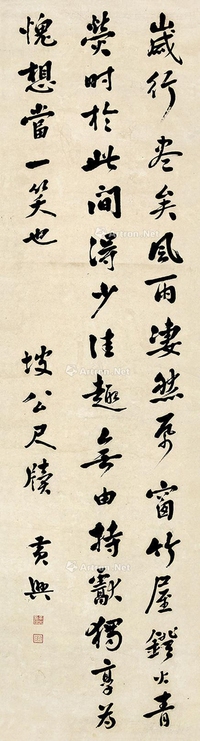 歲行盡矣風雨淒然紙窗竹屋鐙火青
熒时於此間得少佳趣無由持獻獨享為
愧想當一笑也
坡公尺牘 黄興